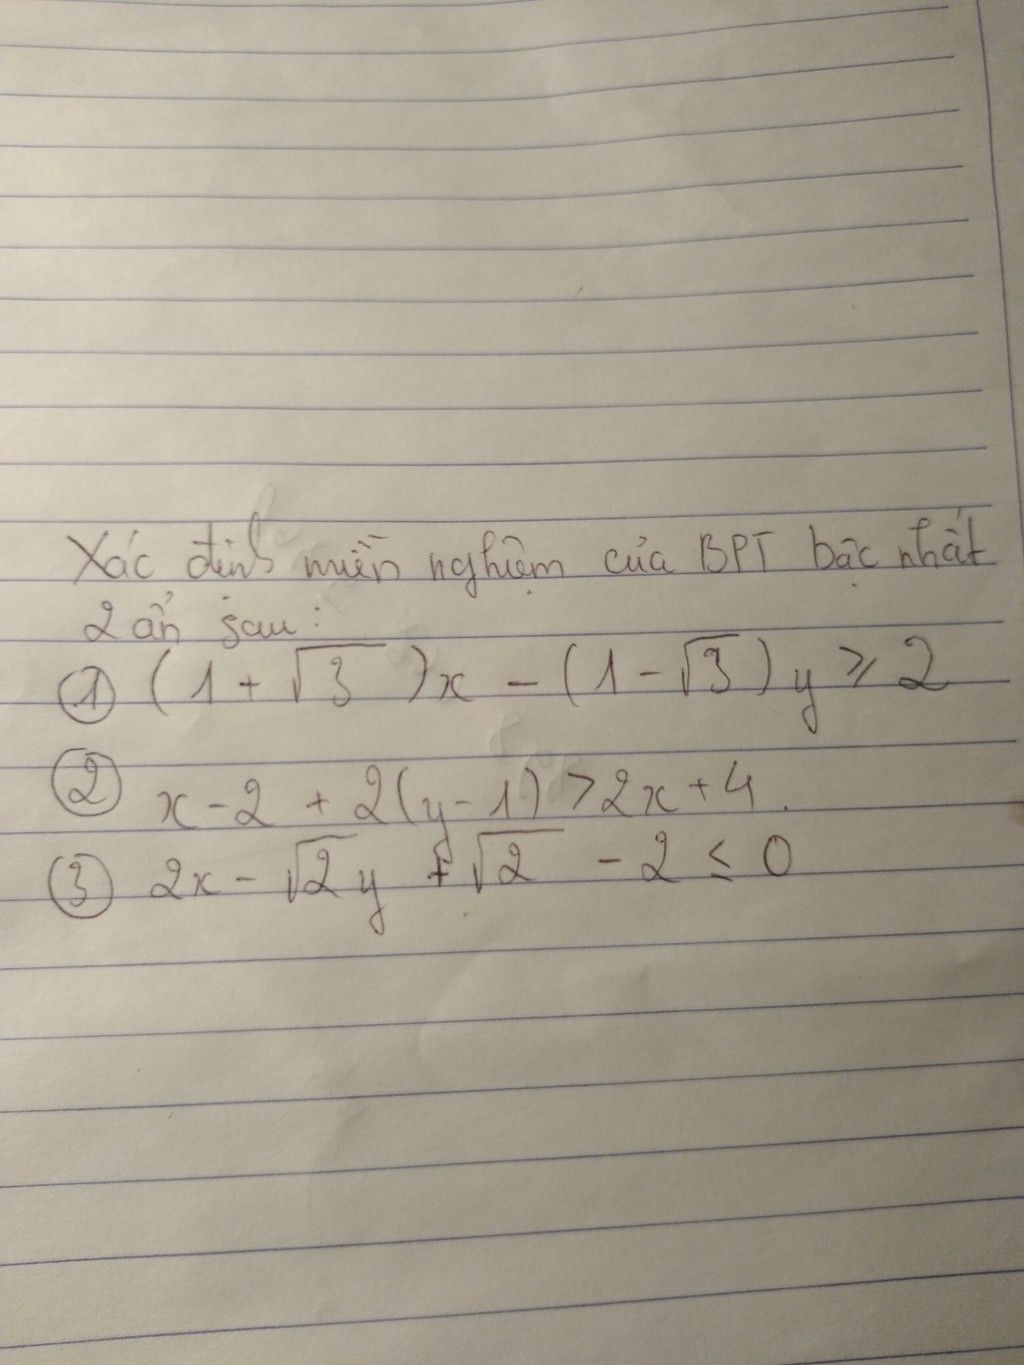 Xác định miền nghiệm của BPT bậc nhất
2 ẩn sau:
① (1 + √3)x - (1 - √3)y ≥ 2
② x - 2 + 2(y - 1) > 2x + 4.
③ 2x - √2y + √2 - 2 ≤ 0